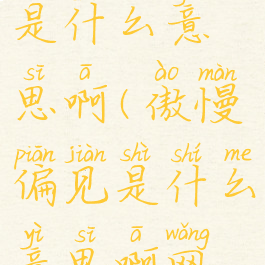 是什么意
sī ā ào màn
思啊(傲慢
piān jiàn shì shí me
偏见是什么
yì sī ā wǎng
意思啊网